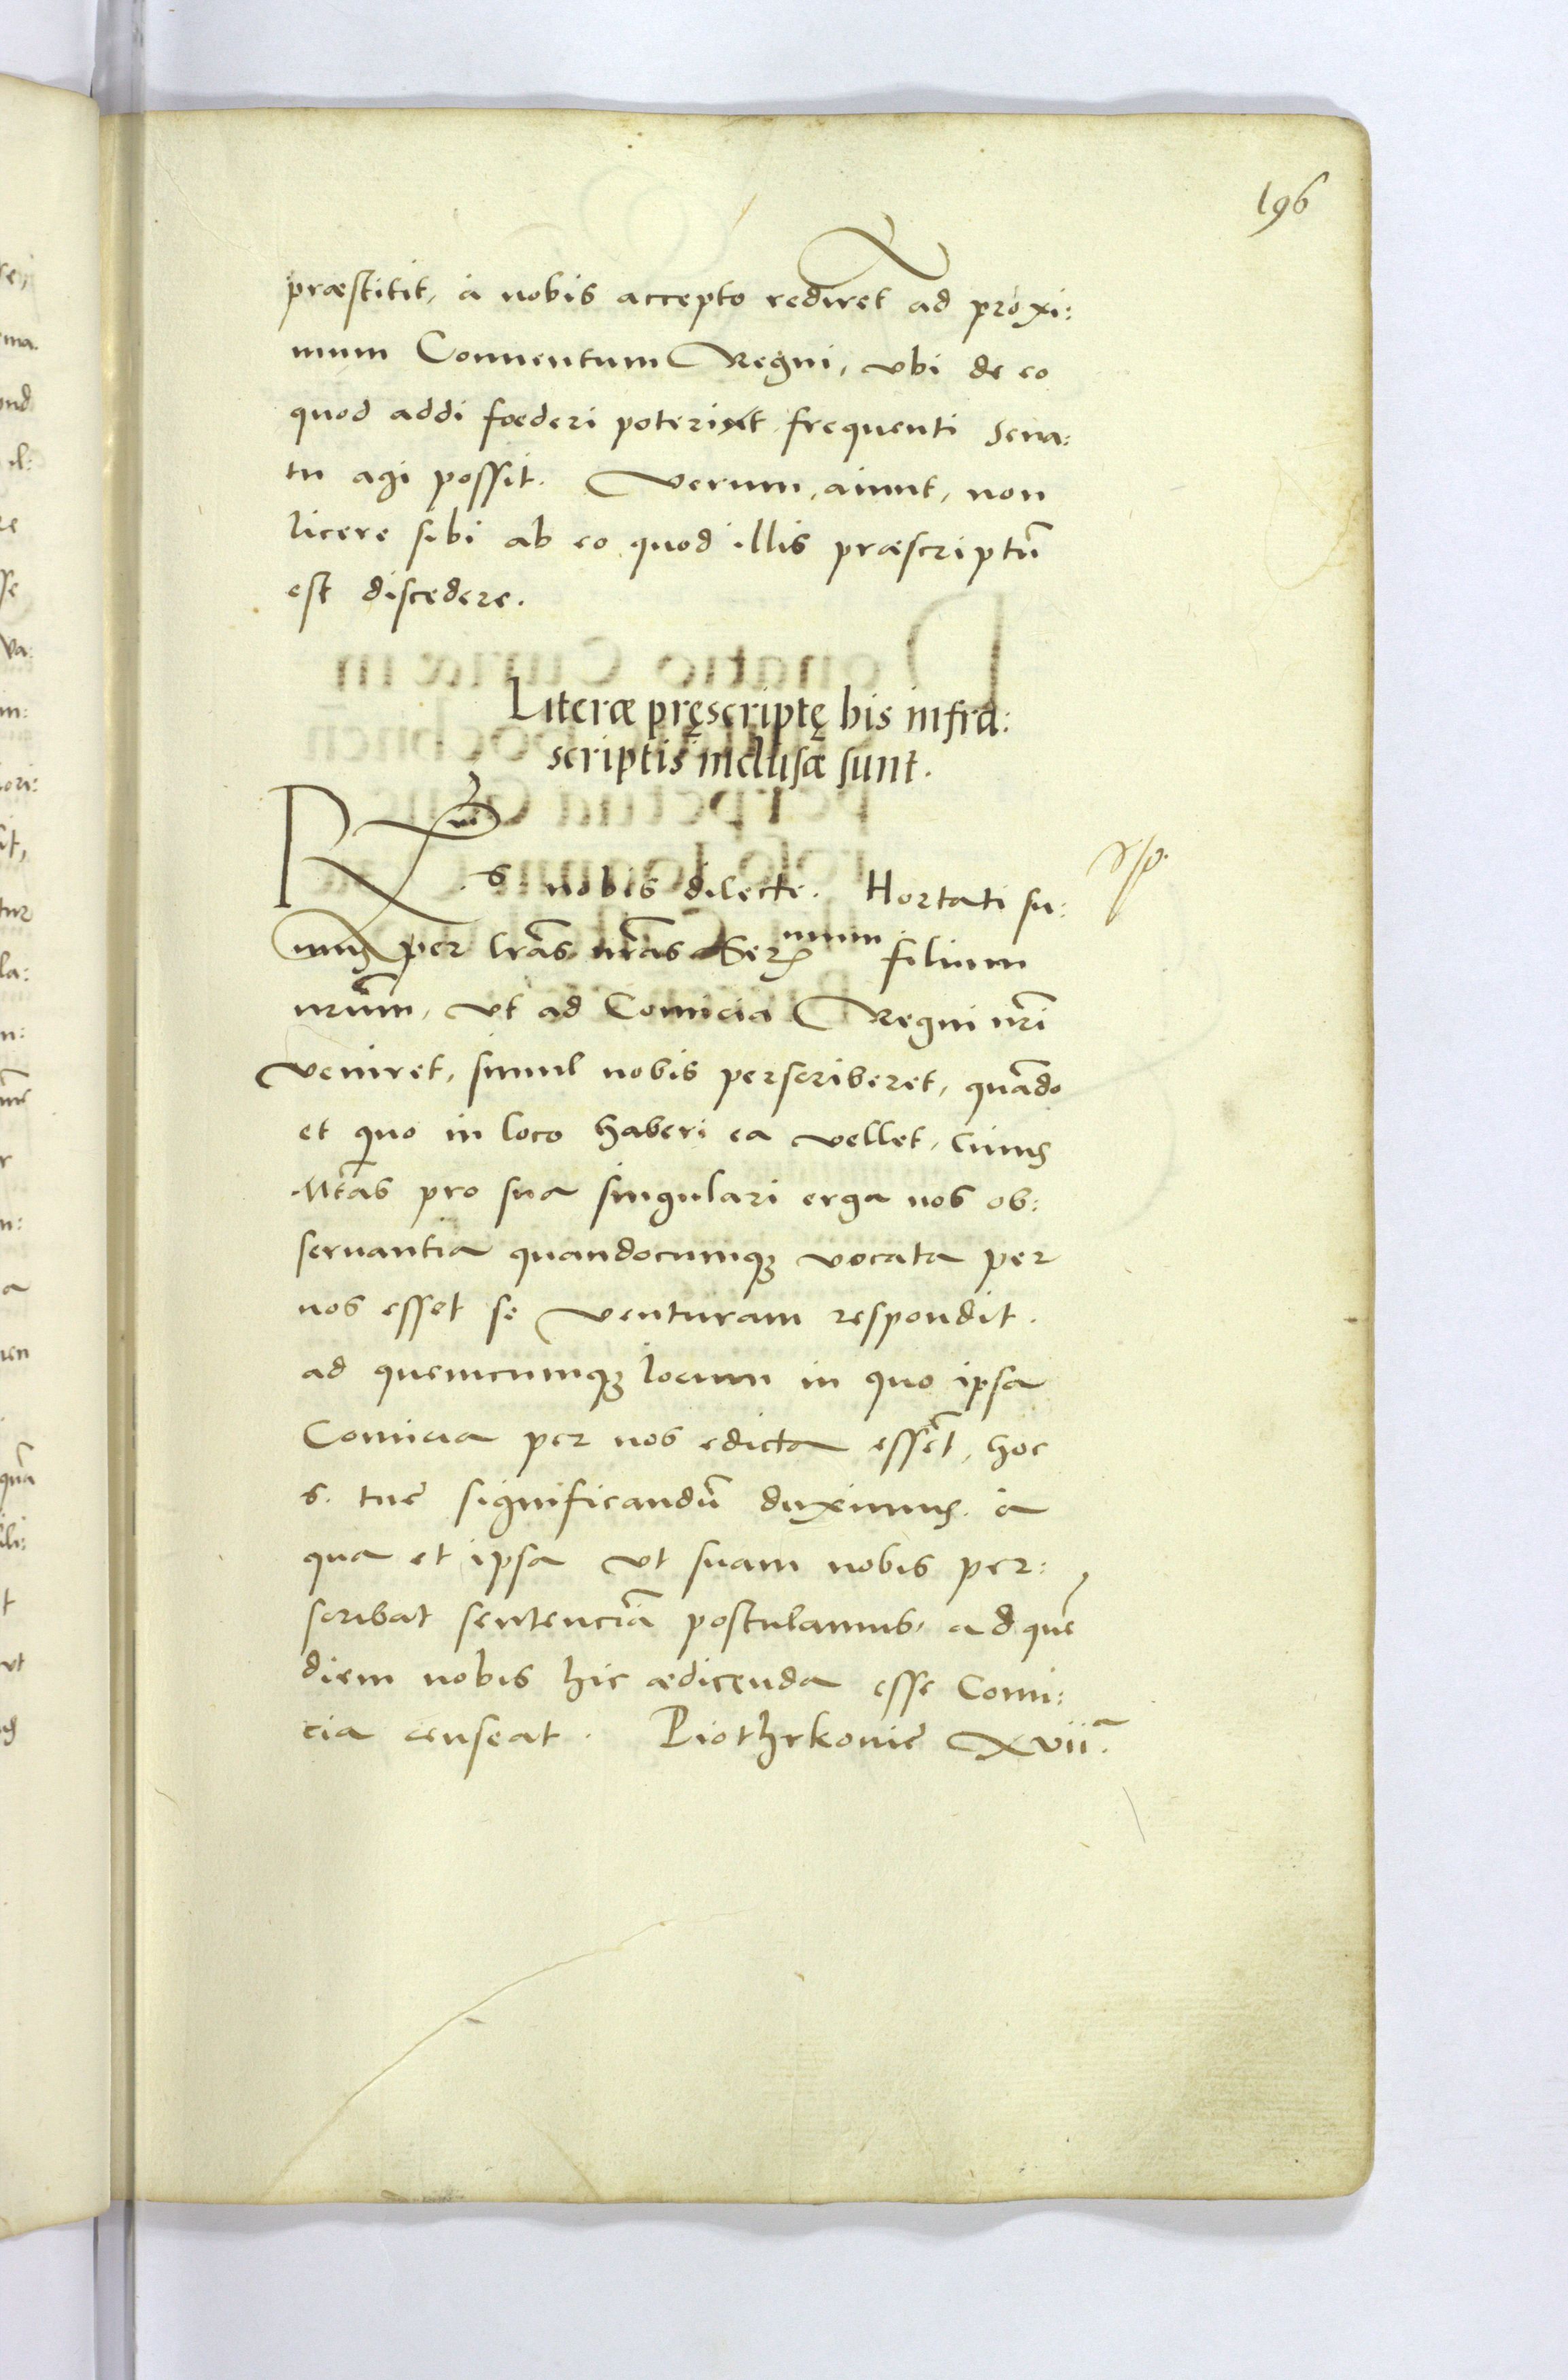 196
præstitit, à nobis accepto rediret ad proxi:
mum Conuentum Regni, vbi de eo
quod addi fœderi poterit frequenti Sena:
tu agi possit. Verum, aiunt, non
licere sibi ab eo quod illis præscriptū
est discedere.
Literæ pręscriptę his infra:
scriptis inclusæ sunt.
R nobis dilecte. Hortati su:
mus per lr̃as nr̃as Ser mum filium
nr̃um, vt ad Comicia Regni nr̃i
veniret, simul nobis perscriberet, quãdo
et quo in loco haberi ea vellet, Cuius
Mt̃as pro sua singulari erga nos ob:
seruantia quandocumq3 vocata per
nos esset se venturam respondit.
ad quemcumq3 locum in quo ipsa
Comicia per nos edicta essẽt, hoc
s. tue significandū duximus. à
qua et ipsa vt suam nobis per:
scribat sentenciã postulamus, ad quẽ
diem nobis hic ædicenda esse Comi:
cia censeat. Piothrkovie xvii.a